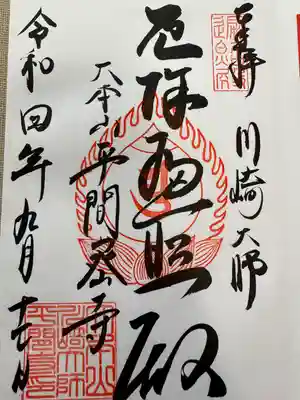 奉拝 川崎大師
厄除遍照殿
大本山平間寺
令和四年九月十七日